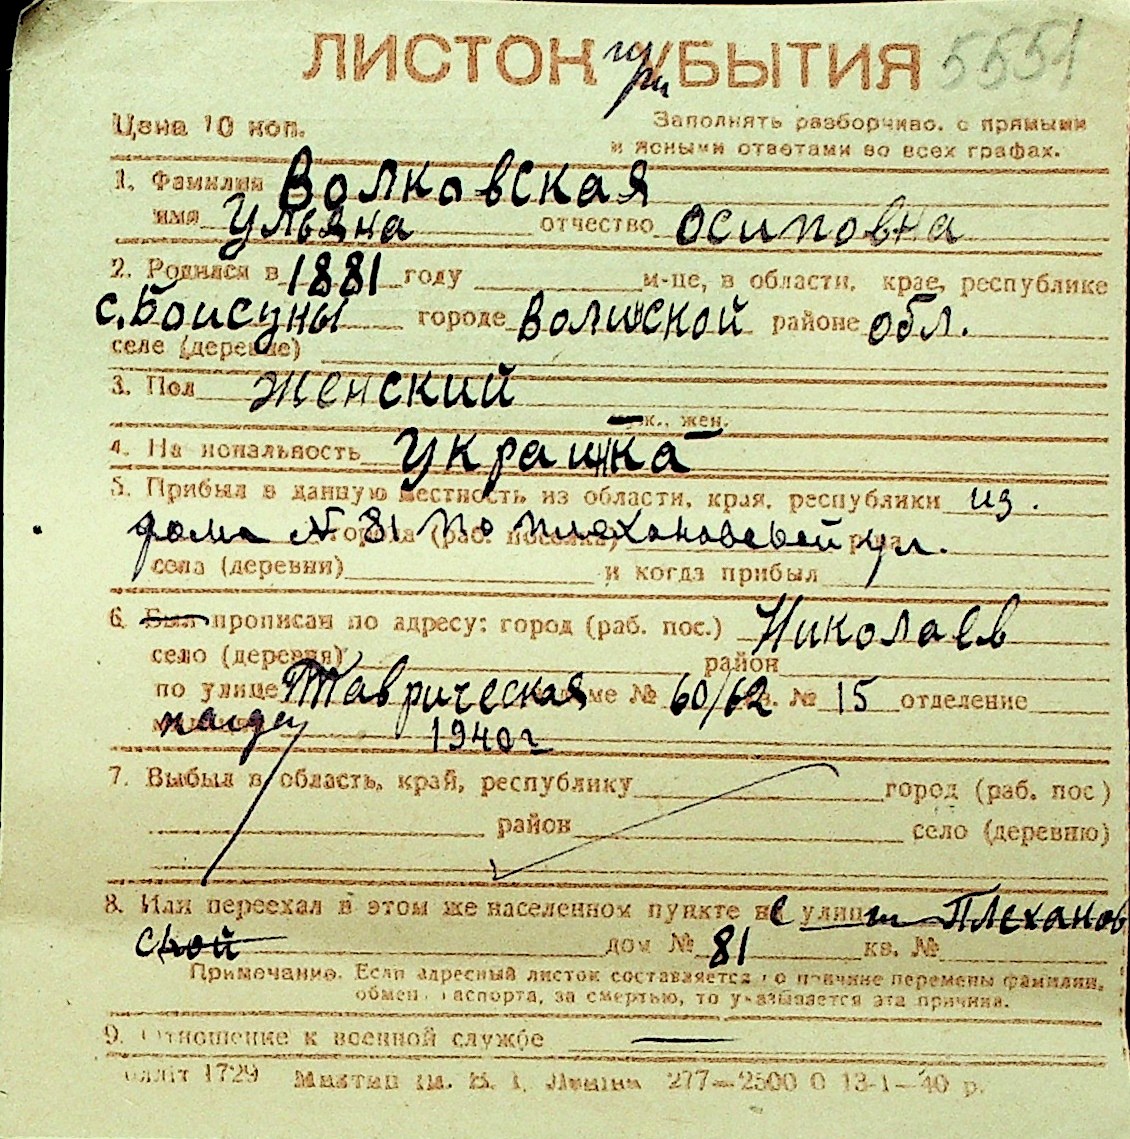 ЛИСТОК УБЫТИЯ 5551
при
Цена 10 коп.
Заполнять разборчиво, с прямыми
и ясными ответами во всех графах.
1. Фамилия Волковская
имя Ульяна отчество Осиповна
2. Родился в 1881 году м-це, в области, крае, республике
с. Боисуны городе Волинской районе обл.
селе (деревне)
3. Пол женский
муж., жен.
4. Национальность украинка
5. Прибыл в данную местность из области, края, республики из
дома № 81 по Плехановской ул.
города (раб. поселка) р-на
села (деревни) и когда прибыл
6. Был прописан по адресу: город (раб. пос.) Николаев
село (деревня) район
по улице Таврическая доме № 60/62 кв. № 15 отделение
1940 г
7. Выбыл в область, край, республику город (раб. пос.)
район село (деревню)
8. Или переехал в этом же населенном пункте с улицы Плеханов
ской дом № 81 кв. №
Примечание. Если адресный листок составляется по причине перемены фамилии,
обмен паспорта, за смертью, то указывается эта причина.
9. Отношение к военной службе —
1729 277—2500 0 13-1—40 р.